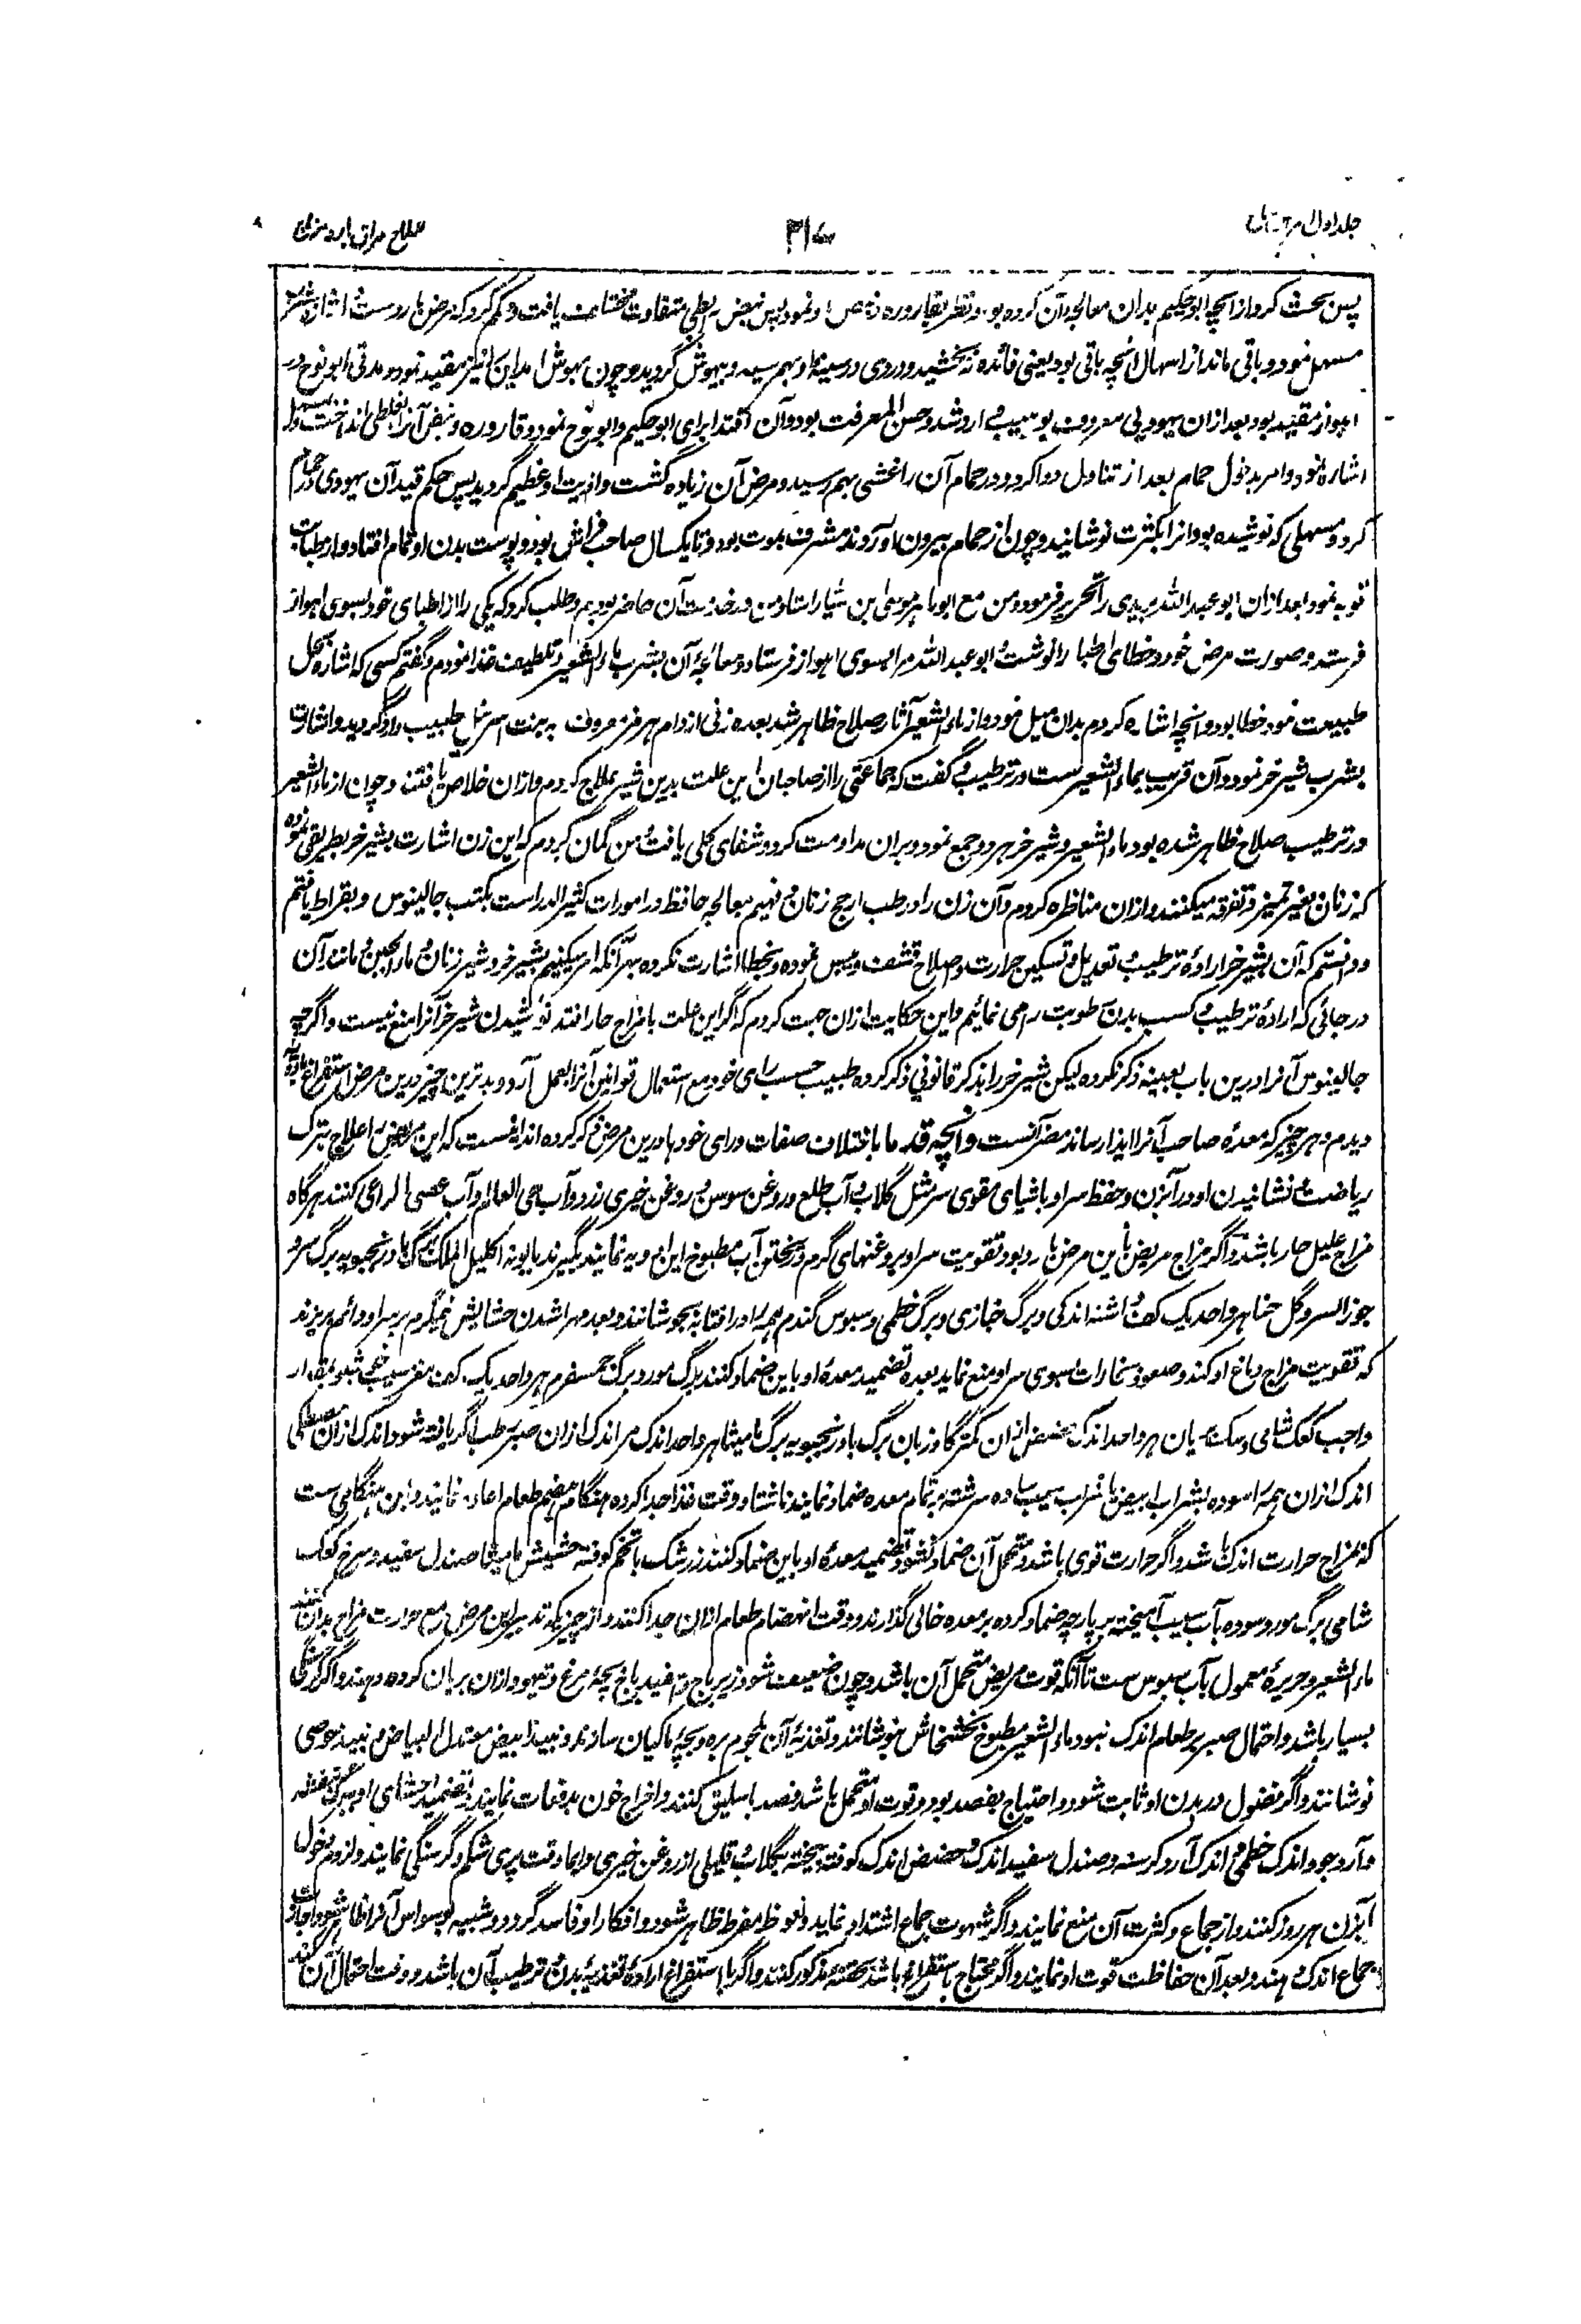 جلد اول
۳۱۷
علاج مراق بارد مزاج
پس بحث کرد از آنچه ابو حکیم بدان معالجه آن کرده بود و نظر بقاروره نمود پس نبض بطی متفاوت مختلف یافت و حکم کرد که مرض بارد ست
مسهل نمود و باقی ماند از اسهال آنچه باقی بود یعنی فائده نه بخشید و دردی در سینه او بهم رسید و بیهوش گردید و چون بهوش آمد این را نیز مقید نمود و مدتی ابو نوح در
اهواز مقید بود بعد ازان یهودیی معروف بود و حسن المعرفت بود و آن اقتدا برای ابو حکیم و ابو نوح نمود و قاروره و نبض آنرا بغلطی انداخت
اشاره نمود و امر بدخول حمام بعد از تناول دوا کرد و در حمام آن را غشی بهم رسید و مرض آن زیاده گشت و اذیت او عظیم گردید پس حکم قید آن یهودی در حمام
کرد و مسهلی که نوشیده بود آنرا بکثرت نوشانید و چون از حمام بیرون آوردند مشرف بموت بود و تا یکسال صاحب فراش بود و پوست بدن او تمام افتاد و از طبابت
توبه نمود بعد ازان ابو عبد الله بریدی را تحریر فرمود و من مع ابو ماهر موسی بن سیار استاد من در خدمت آن حاضر بودیم و طلب کرد که یکی را از اطبای خود بسوی اهواز
فرستد و صورت مرض خود و خطای اطبا را نوشت ابو عبد الله مرا بسوی اهواز فرستاد و معالجه آن بشرب ماء الشعیر و تلطیف غذا نمودم و گفتم کسی که اشاره بحل
طبیعت نمود خطا بود و آنچه اشاره کردم بدان میل نمود و از ماء الشعیر آثار صلاح ظاهر شد بعده زنی از رام هرمز معروف به بنت طبیب وارد گردید و اشارت
بشرب شیر خر نمود و آن قریب بماء الشعیر ست در ترطیب و گفت که جماعتی را از صاحبان این علت بدین شیر علاج کردم و ازان خلاص یافتند و چون از ماء الشعیر
در ترطیب صلاح ظاهر شده بود ماء الشعیر و شیر خر هر دو جمع نمود و بران مداومت کرد و شفای کلی یافت من گمان کردم که این زن اشارت بشیر خر بطریقی نموده
که زنان بغیر تمیز و تفرقه میکنند و ازان مناظره کردم و آن زن را در طب ارجح زنان و فهیم معالجه حافظ و در امورات کثیر الدراست بکتب جالینوس و بقراط یافتم
و دانستم که آن بشیر خر اراده ترطیب و تعدیل و تسکین حرارت و اصلاح قشف و یبس نموده و بخطا اشارت نکرده بهر آنکه امر میکنیم بشیر خر و شیر زنان و ماء الجبن و مانند آن
در جائی که اراده ترطیب و کسب بدن رطوبت را می نمائیم و این حکایت ازان جهت کردم که اگر این علت با مزاج حار افتد نوشیدن شیر خر آنرا منع نیست و اگرچه
جالینوس آنرا درین باب بعینه ذکر نکرده لیکن شیر خر را بذکر قانونی ذکر کرده طبیب حسب رای خود مع استعمال قوانین آنرا بعمل آرد و بدترین چیز درین مرض استفراغ بادویه
دیدم و هر چیز که معده صاحب آنرا ایذا رساند مضر آنست و آنچه قدما باختلاف صفات و رای خودها درین مرض ذکر کرده اند اینست که این مرض را علاج بترک
ریاضت و نشانیدن او در آبزن و حفظ سر او باشیای مقوی سر مثل گلاب و آب طلع و روغن سوسن و روغن خیری زرد و آب حی العالم و آب عصی الراعی کنند هرگاه
مزاج علیل حار باشد و اگر مزاج مریض باین مرض بارد بود تقویت سر او بروغنهای گرم و ریختن آب مطبوخ این ادویه نمایند بگیرند بابونه اکلیل الملک بادرنجبویه برگ سرو
جوز السرو گل حنا هر واحد یک کف اشنه اندکی و برگ خبازی و برگ خطمی و سبوس گندم همه را در آفتابه بجوشانند و بعد مهرا شدن حشایش نیمگرم بر سر او دائم بریزند
که تقویت مزاج دماغ او کند و صعود بخارات بسوی سر او منع نماید بعده تضمید معده او باین ضماد کنند برگ مورد و برگ جمسفرم هر واحد یک کف بمقدار
واجب کعک شامی و سک هر واحد اندک حضض ازان کمتر گاو زبان برگ بادرنجبویه برگ مامیثا هر واحد اندک مر اندک ازان صبر طب اگر یافته شود اندک ازان مصطگی
اندک ازان همه را سوده بشراب ابیض یا شراب سیب ساده سرشته بر تمام معده ضماد نمایند ناشتا و وقت غذا جدا کرده هنگام هضم طعام اعاده نمایند و این هنگامی ست
که مزاج حرارت اندک باشد و اگر حرارت قوی باشد و متحمل آن ضماد نشود تضمید معده او باین ضماد کنند زرشک با تخم کوفته حشیش مامیثا صندل سفید و سرخ کعک
شامی برگ مورد سوده بآب سیب آمیخته بر پارچه ضماد کرده بر معده خالی گذارند و وقت انهضام طعام ازان جدا کنند و از چیزیکه تدبیر این مرض مع حرارت مزاج بدان کنند
ماء الشعیر و حریره معمول بآب سبوس ست تا آنکه قوت مریض متحمل آن باشد و چون ضعیف شود زیرباج و اسفیدباج بچه مرغ و تیهو و ازان بریان کرده دهند و اگر گرسنگی
بسیار باشد و احتمال صبر بر طعام اندک نبود ماء الشعیر مطبوخ بخشخاش نوشانند و تغذیه آن بلحوم بره و بچه ماکیان سازند و نبیذ ابیض معتدل البیاض و نبیذ
نوشانند و اگر فضول در بدن او ثابت شود و احتیاج بفصد بود و قوت او متحمل باشد فصد باسلیق کنند و اخراج خون بدفعات نمایند و تضمید احشای او ببرگ بنفشه
و آرد جو و اندک خطمی و اندک آرد کرسنه و صندل سفید اندک و حضض اندک کوفته بیخته بگلاب و قلیلی از روغن خیری دایما وقت پری شکم و گرسنگی نمایند و لزوم دخول
آبزن هر روز کنند و از جماع و کثرت آن منع نمایند و اگر شهوت جماع اشتداد نماید و نعوظ مفرط ظاهر شود و افکار او فاسد گردد و شبیه بوسواس آنرا ظاهر شود اجازت
جماع اندک دهند و بعد آن حفاظت قوت او نمایند و اگر محتاج باستفراغ باشد حقنه مذکور کنند و اگر با استفراغ اراده تغذیه بدن و ترطیب آن باشد و وقت احتمال آن کند